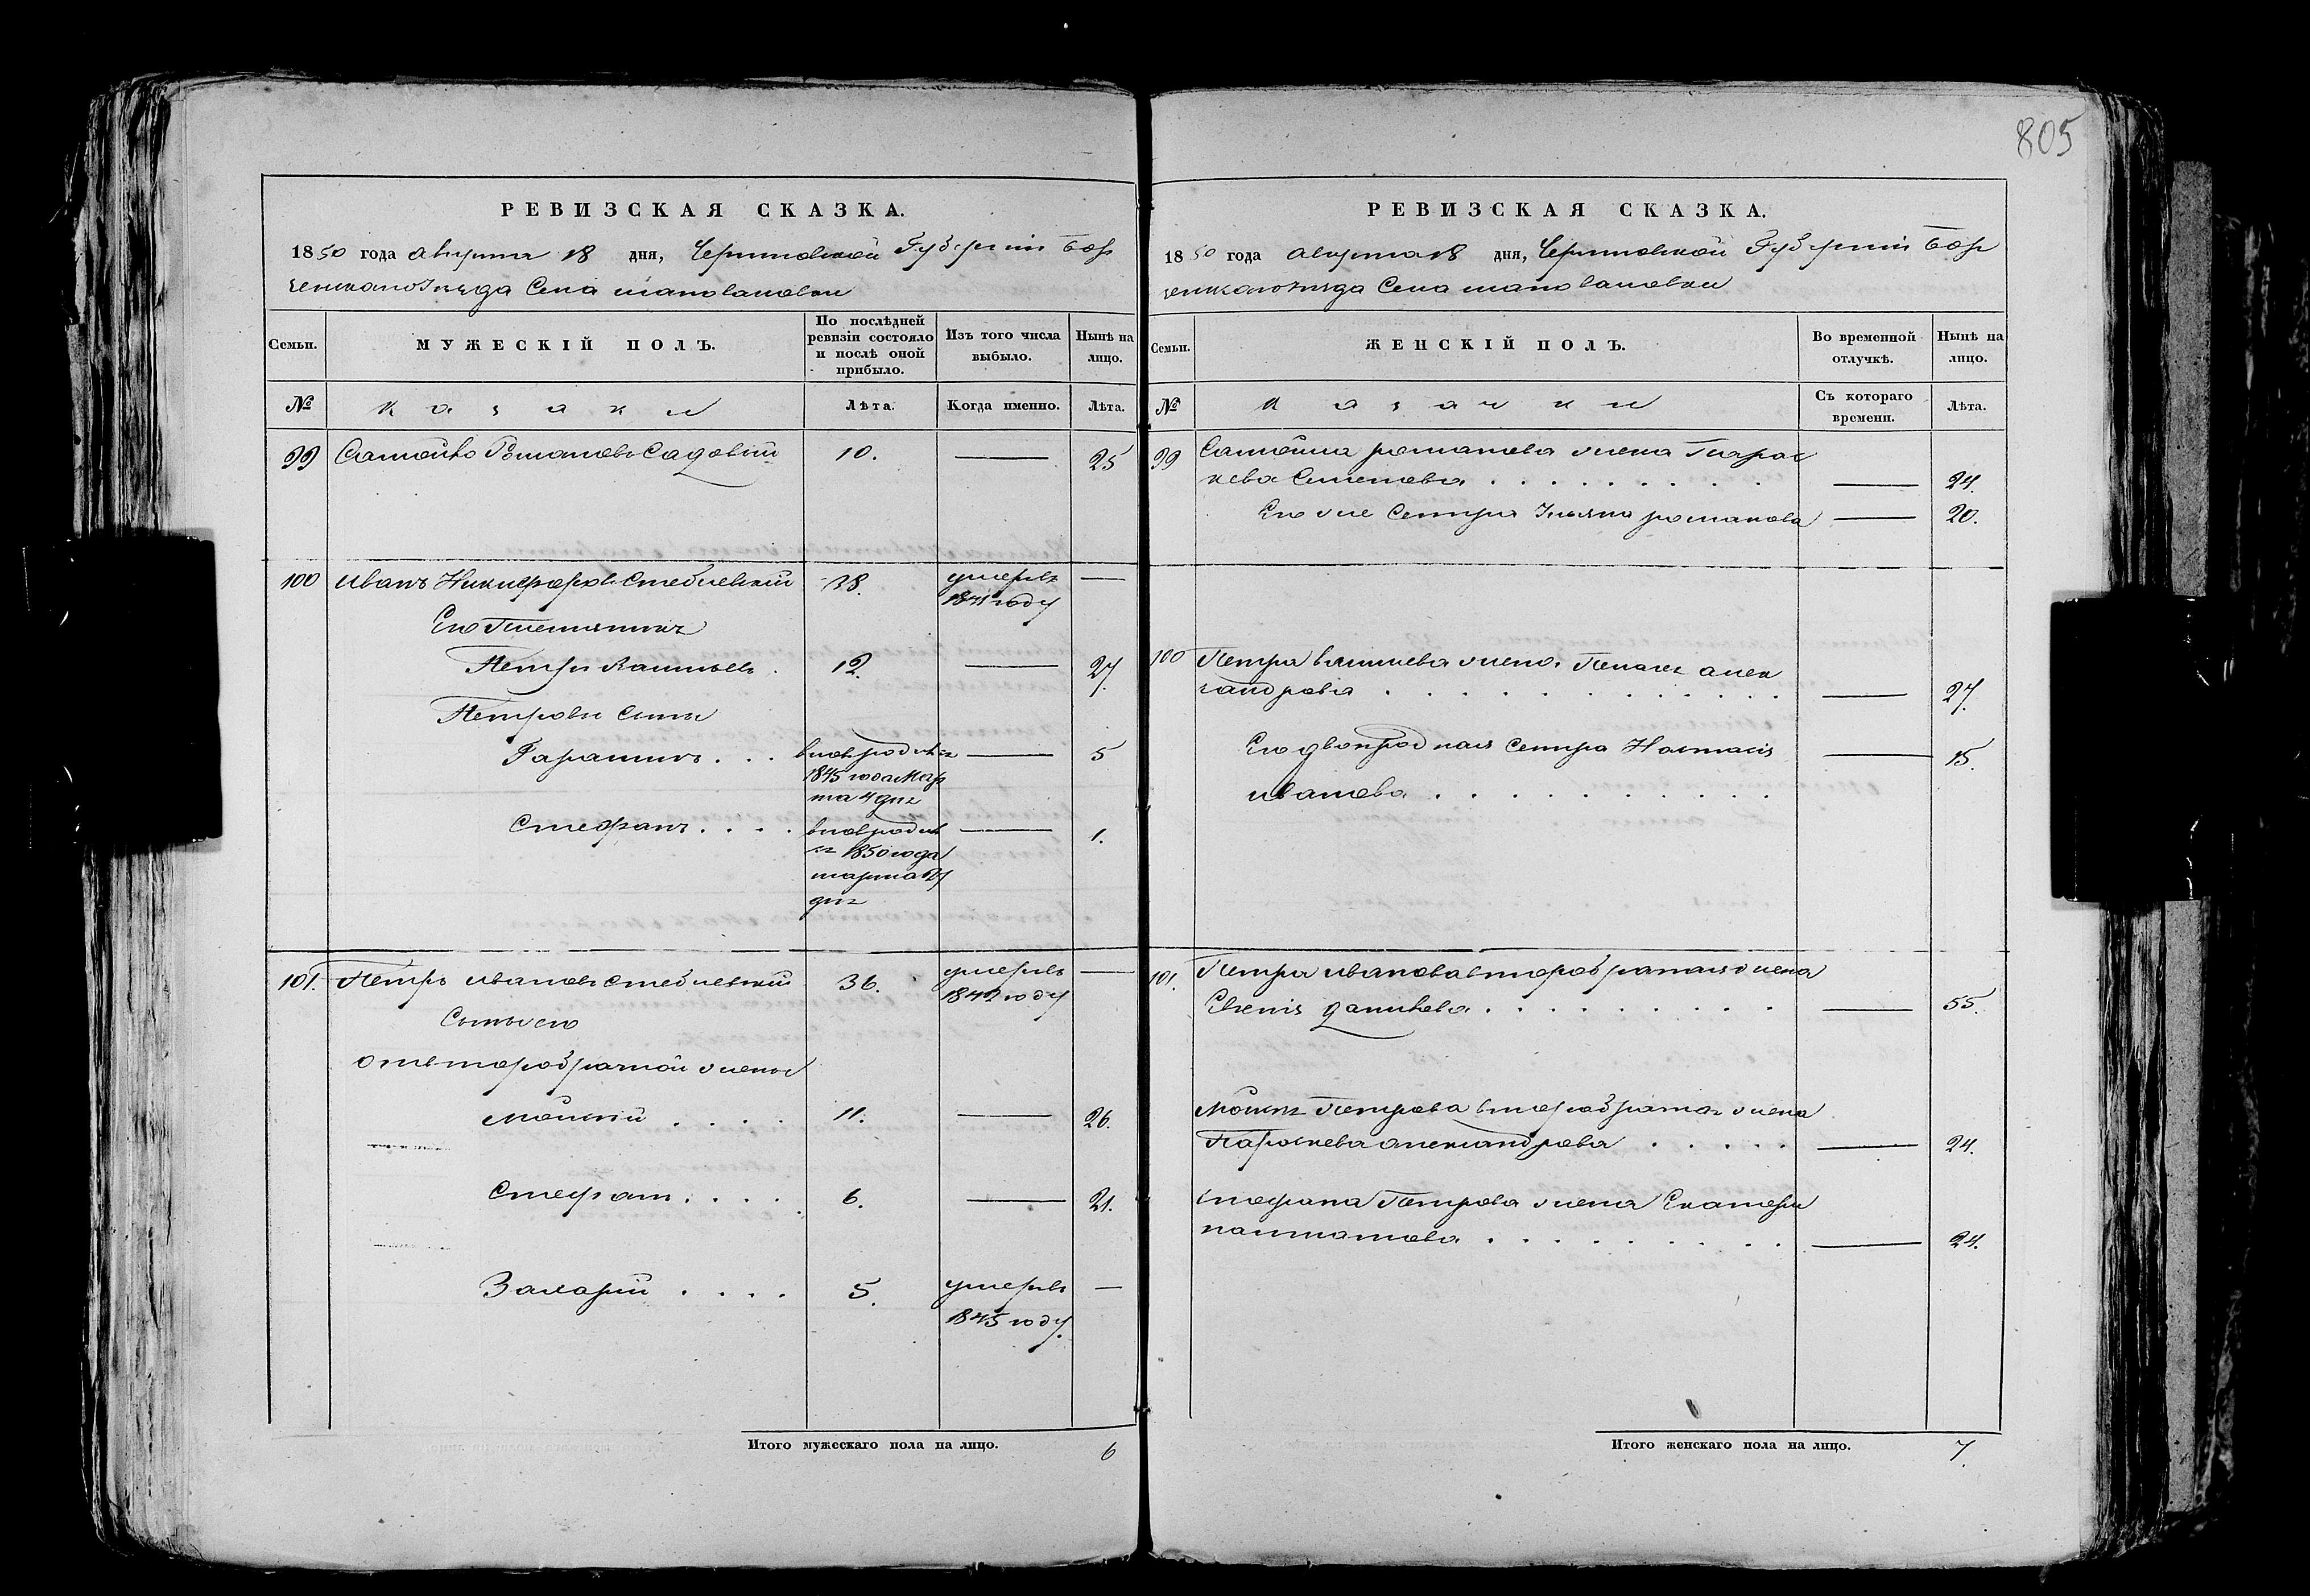 805
РЕВИЗСКАЯ СКАЗКА.
1850 года августа 18 дня, Черниговской Губерніи Бор
зенскаго Уезда Села
Семьи.
МУЖЕСКІЙ ПОЛЪ.
По послѣдней ревизіи состояло и послѣ оной прибыло.
Изъ того числа выбыло.
Нынѣ на лицо.
№
Козаки
Лѣта.
Когда именно.
Лѣта.
99 Самойло Романовъ Садовый 10. — 25
100 Иванъ Никифоровъ Стеблевскій 38. умеръ —
1841 году
Его Племянникъ
Петръ 12. — 27.
Петровы Сыны
Гарасимъ . . . вновь родился — 5
1845 года Мар
та 4 дня
Стефанъ . . . . вновь родил — 1.
ся 1850 года
марта
дня
101. Петръ Ивановъ Стеблевскій 36. умеръ —
1842 году
Сыны его
отъ второбрачной жены
Мойсей . . . . 11. — 26.
Стефанъ . . . . 6. — 21.
Захарій . . . . 5. умеръ —
1845 году.
Итого мужескаго пола на лицо. 6
РЕВИЗСКАЯ СКАЗКА.
1850 года августа 18 дня, Черниговской Губерніи Бор
зенскаго Уезда Села
Семьи.
ЖЕНСКІЙ ПОЛЪ.
Во временной отлучкѣ.
Нынѣ на лицо.
№
Козачки
Съ котораго времени.
Лѣта.
99 Самойла романова жена Парас
кева Семенова . . . . . . . . — 24.
Его же Сестра Ульяна романова — 20.
100 Петра жена Пелагея алек
сандрова . . . . . . . . . . . — 27.
Его двоюродная Сестра Настасія — 15.
Иванова . . . . . . . . . .
101. Петра Иванова второбрачная жена
Евгенія данилова . . . . . . . . — 55.
Мойсея Петрова второбрачная жена
Параскева александрова . . . . . — 24.
Стефана Петрова жена Екатери
на . . . . . . . . . — 24.
Итого женскаго пола на лицо. 7.